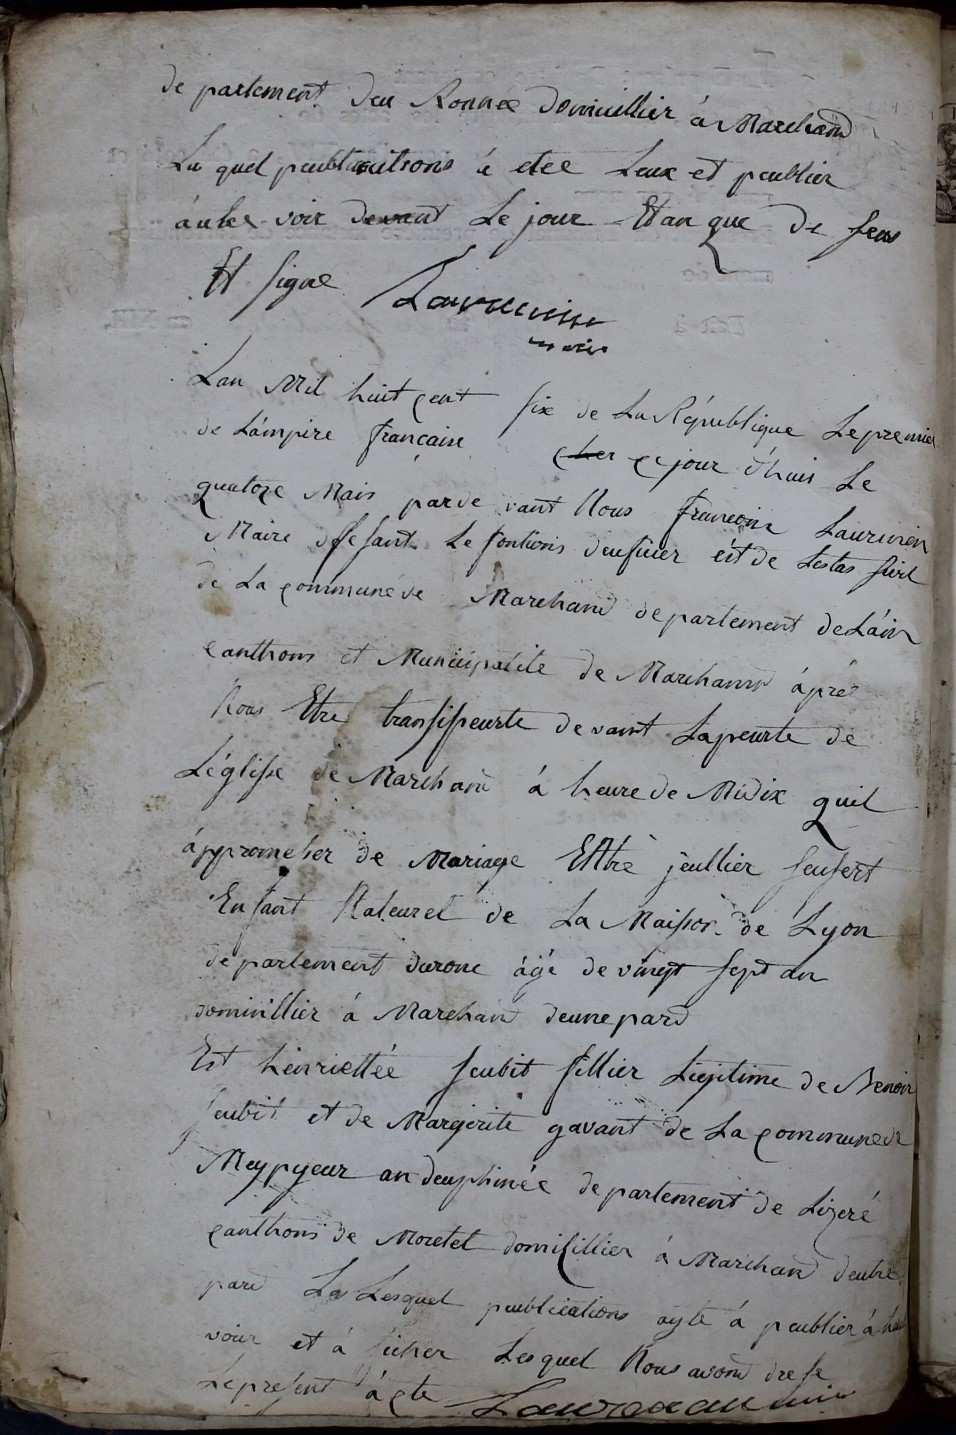 de partement deu Ronnee domicillier á Marchand
La quel peublicaitions á etée Leux et peublier
áutee voix devant Le jour Etan que de sens
Et signe Lauremein
maire
Lan Mil huit çent six de La République Le premier
de Lámpire françaisse çejour dhuis Le
quatoze Mais parde vant Nous francoin Lauremein
Maire ofesant Le fontions deuficier éit de Lestas sivil
de La çommune de Marchand departement deLáin
canthons et Municipalité de Marchand áprés
Nous Etre transspeurte devant Lapeurte de
Léglisse de Marchand á heure de Midix quil
áppromeher de Mariage Ettre jeullier seufert
Enfant Nateurel de La Maisson de Lyon
departement durone ágé de vingt sept an
dominillier á Marchand deunepard
Est henriettée seubit fillier Legitime de Benoir
seubit et de Margerite gavant de La çommune de
Meypyeur an deuphinée departement de Lizeré
çanthons de Moretel domisillier á Marchand deutre
pard La Lesquel peublications ayte á peublier á hau
voix et á ficher Lesquel Nous avond dresse
Lepresent ácte Lauremein maire